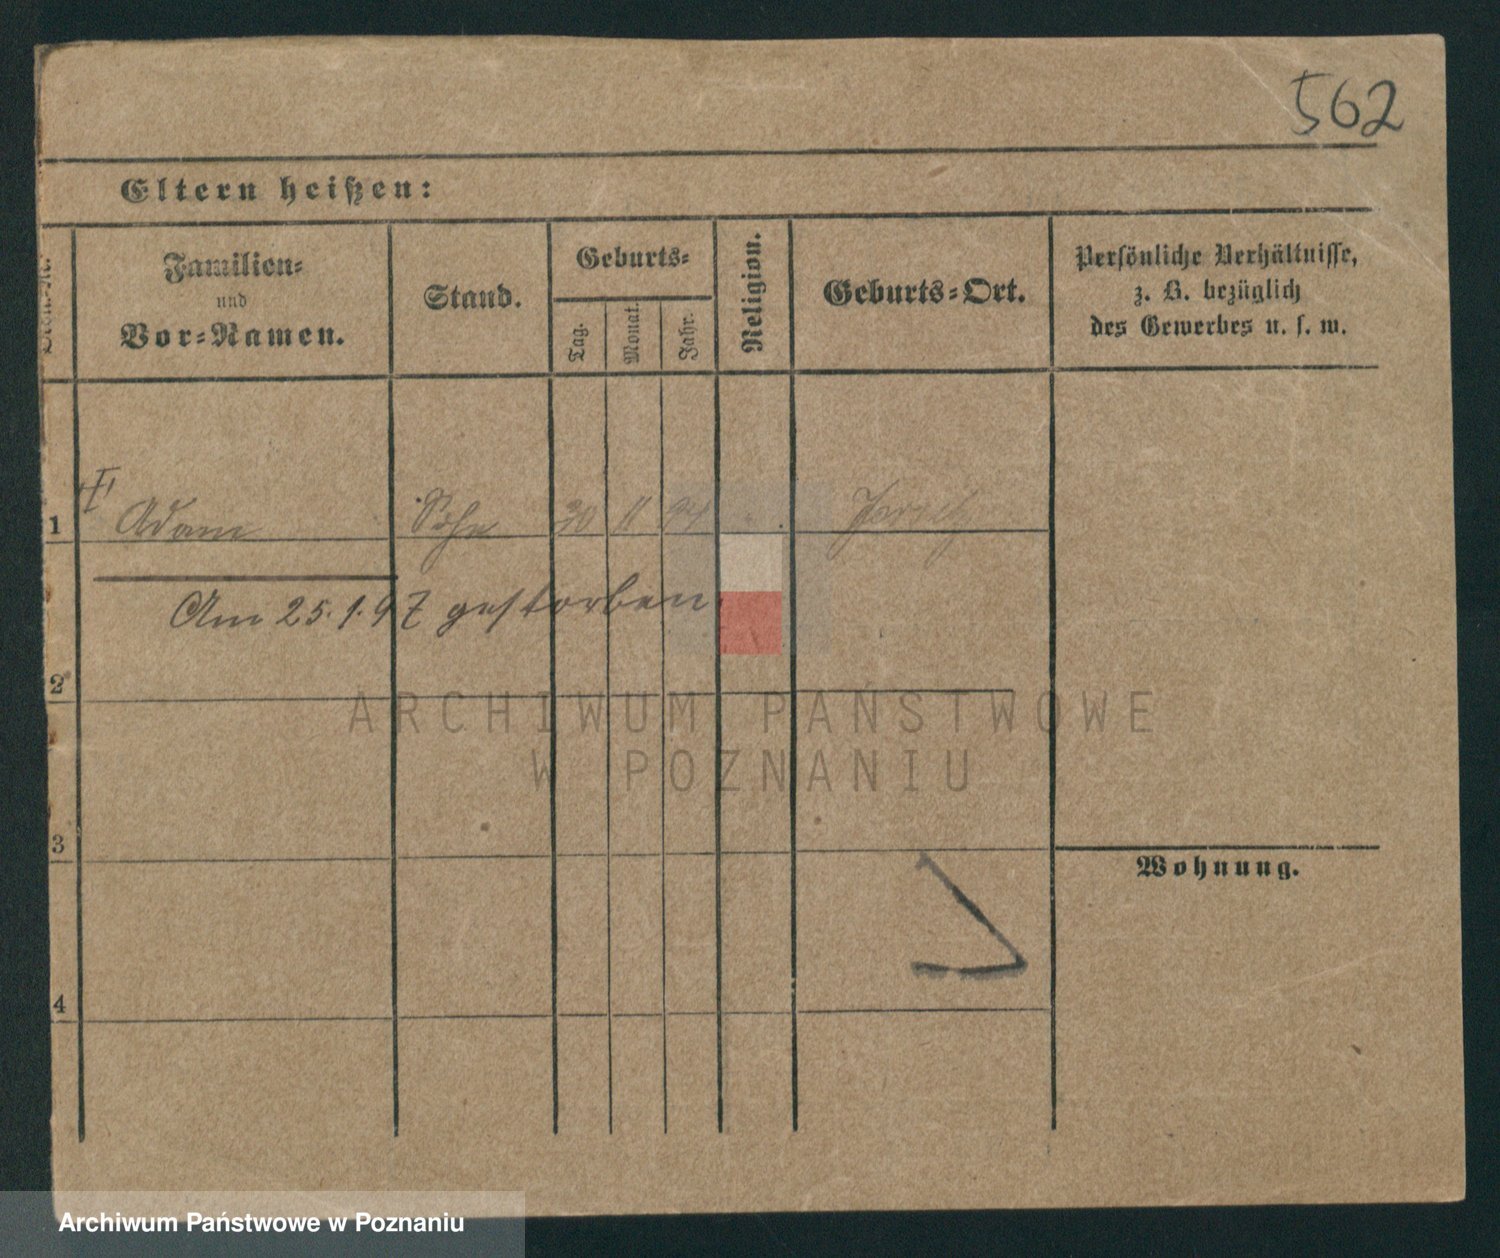 562
Eltern heißen:
Familien-
und
Vor-Namen.
Stand.
Geburts-
Tag.
Monat.
Jahr.
Religion.
Geburts-Ort.
Persönliche Verhältnisse,
z. B. bezüglich
des Gewerbes u. s. w.
1 Adam Sohn 30 11 94
Am 25.1.97 gestorben.
2
ARCHIWUM PAŃSTWOWE
W POZNANIU
3
Wohnung.
4
Archiwum Państwowe w Poznaniu